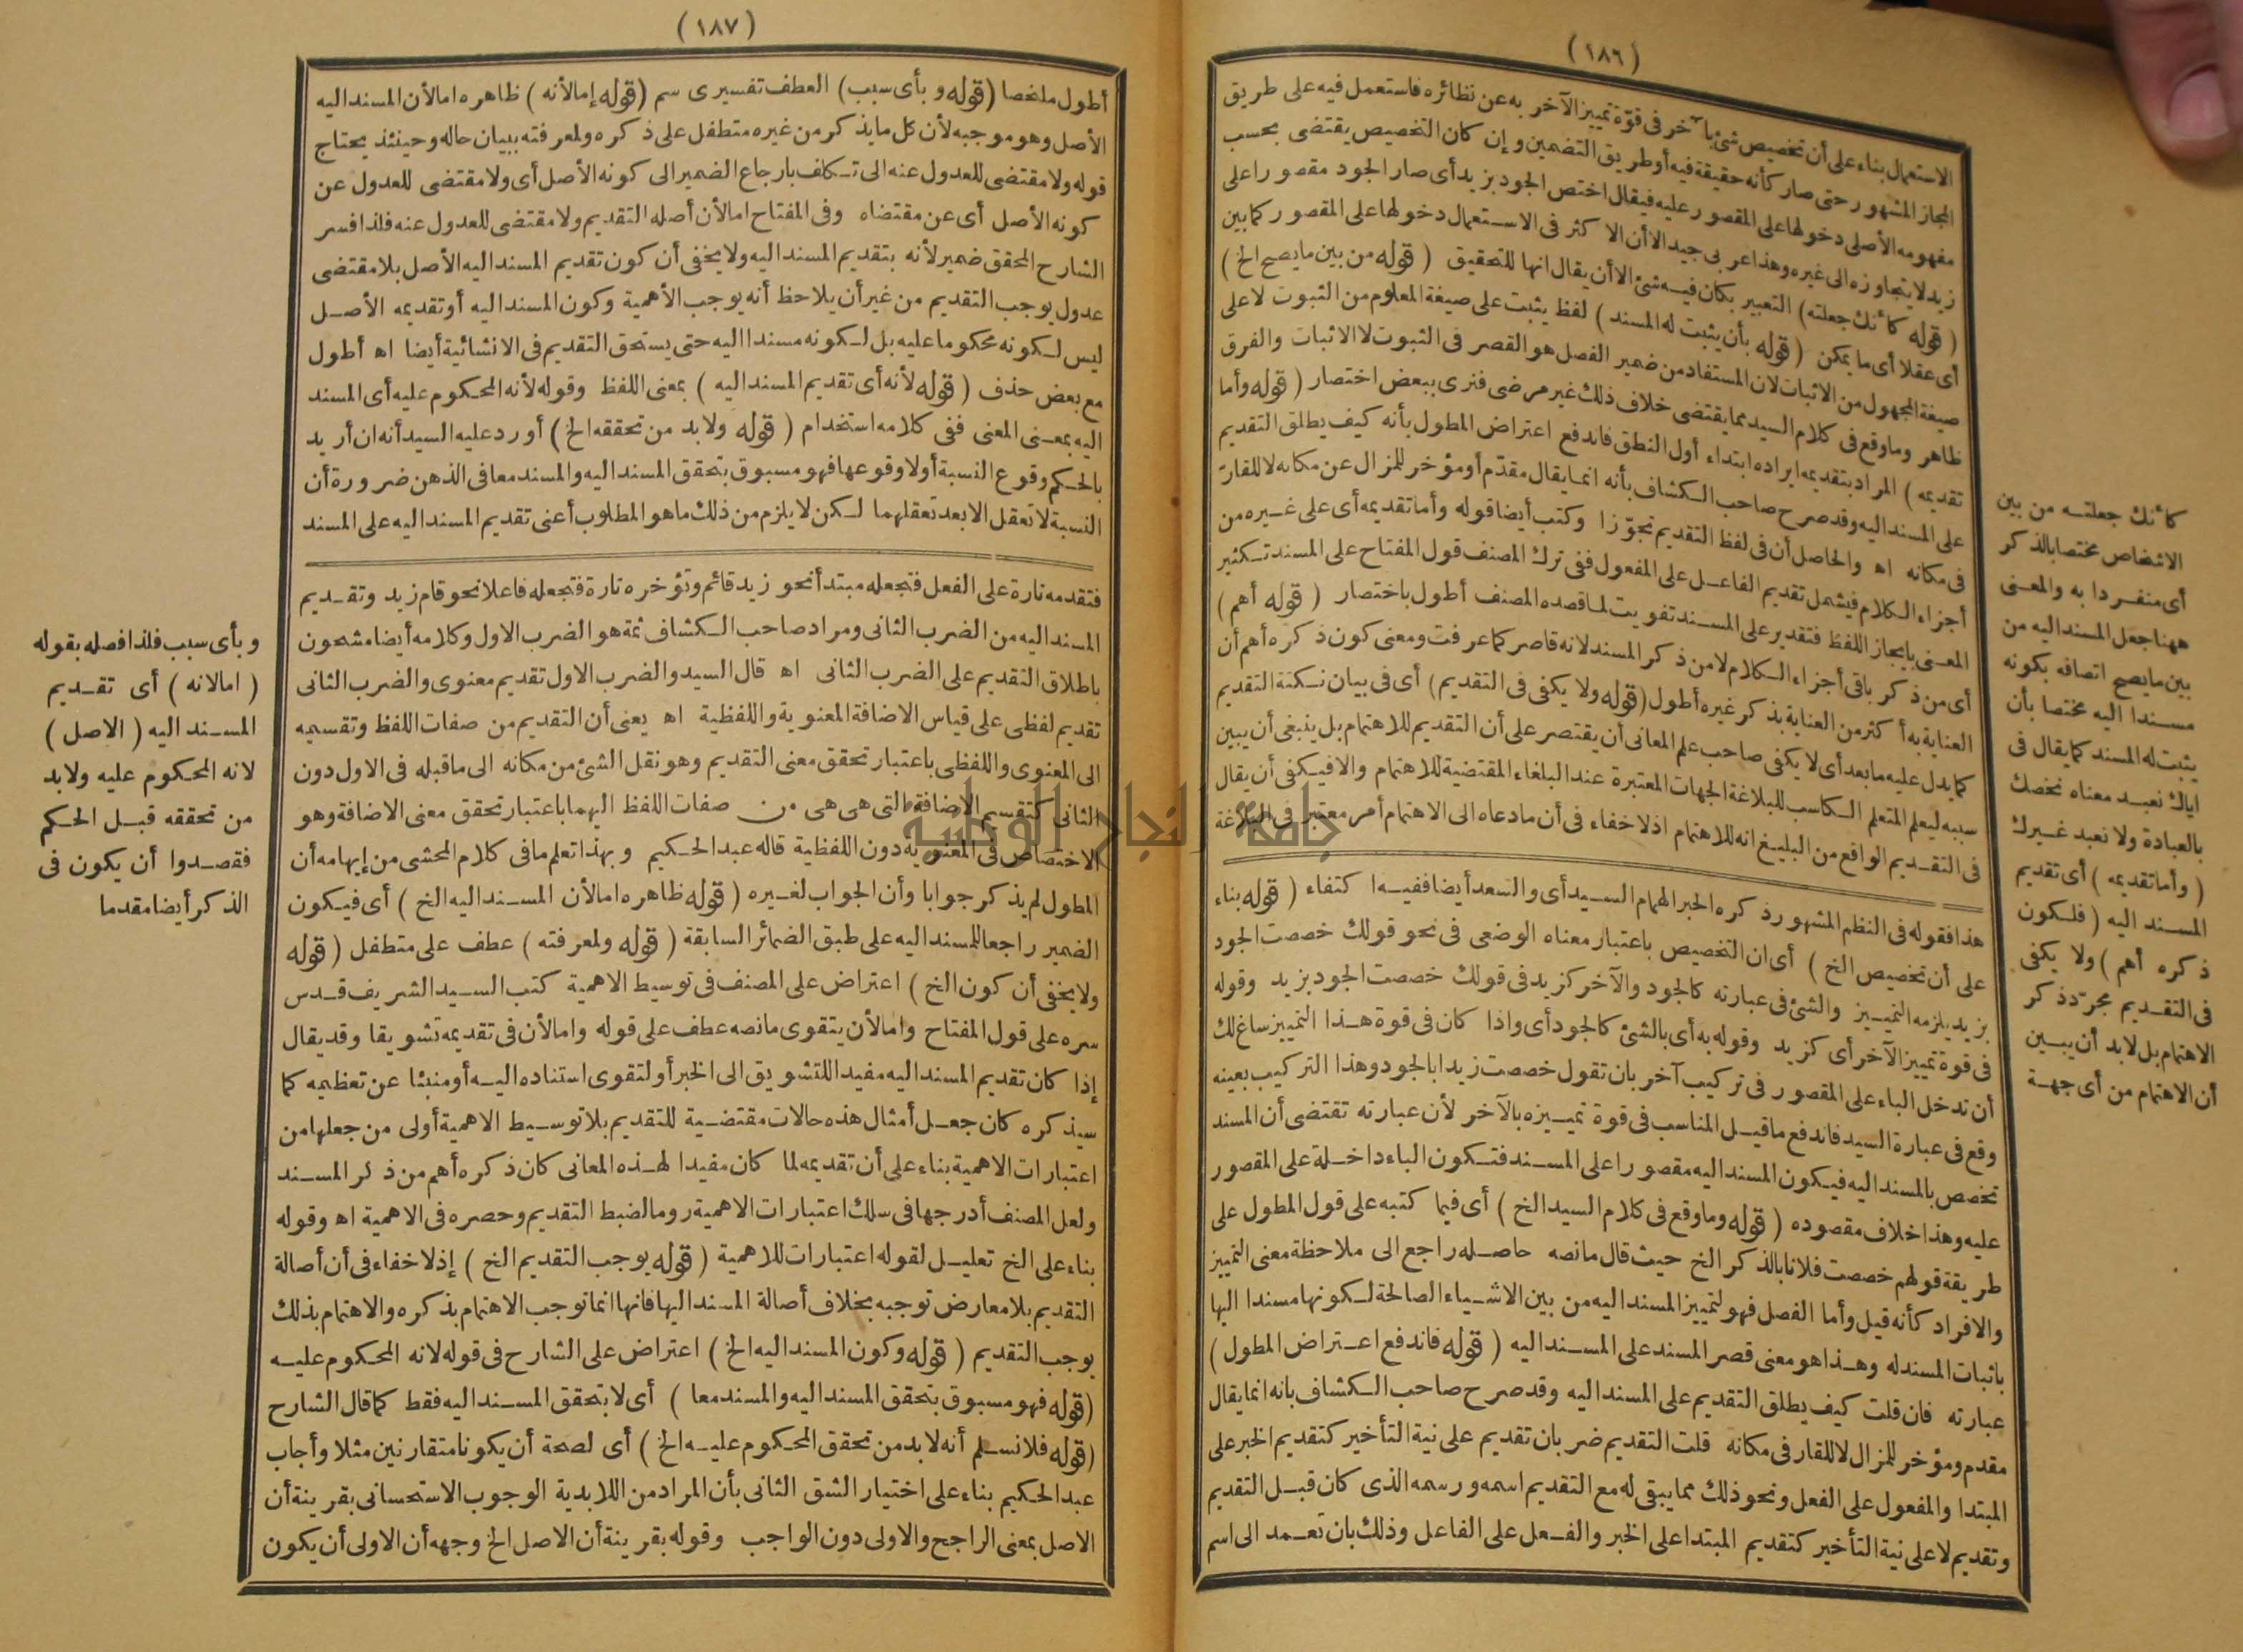 (١٨٦)
الاستعمال بناء على أن تخصيص شئ بآخر فى قوّة تمييز الآخر به عن نظائره فاستعمل فيه على طريق
المجاز المشهور حتى صار كأنه حقيقة فيه أو طريق التضمين وإن كان التخصيص يقتضى بحسب
مفهومه الأصلى دخولها على المقصور عليه فيقال اختص الجود بزيد أى صار الجود مقصورا على
زيد لا يتجاوزه الى غيره وهذا عربى جيد الا أن الاكثر فى الاستعمال دخولها على المقصور كما بين
(قوله كأنك جعلته) التعبير بكان فيه شئ الا أن يقال انها للتحقيق (قوله من بين ما يصح الخ)
أى عقلا أى ما يمكن (قوله بأن يثبت له المسند) لفظ يثبت على صيغة المعلوم من الثبوت لا على
صيغة المجهول من الاثبات لان المستفاد من ضمير الفصل هو القصر فى الثبوت لا الاثبات والفرق
ظاهر وما وقع فى كلام السيد مما يقتضى خلاف ذلك غير مرضى فنرى ببعض اختصار (قوله وأما
تقديمه) المراد بتقديمه ايراده ابتداء أول النطق فاندفع اعتراض المطول بأنه كيف يطلق التقديم
على المسند اليه وقد صرح صاحب الكشاف بأنه انما يقال مقدّم أو مؤخر للمزال عن مكانه لا للقارّ
فى مكانه اه والحاصل أن فى لفظ التقديم تجوّزا وكتب أيضا قوله وأما تقديمه أى على غيره من
أجزاء الكلام فيشمل تقديم الفاعل على المفعول ففى ترك المصنف قول المفتاح على المسند تكثير
المعنى بايجاز اللفظ فتقدير على المسند تفويت لما قصده المصنف أطول باختصار (قوله أهم)
أى من ذكر باقى أجزاء الكلام لا من ذكر المسند لانه قاصر كما عرفت ومعنى كون ذكره أهم أن
العناية به أكثر من العناية بذكر غيره أطول (قوله ولا يكفى فى التقديم) أى فى بيان نكتة التقديم
كما يدل عليه ما بعد أى لا يكفى صاحب علم المعانى أن يقتصر على أن التقديم للاهتمام بل ينبغى أن يبين
سببه ليعلم المتعلم الكاسب للبلاغة الجهات المعتبرة عند البلغاء المقتضية للاهتمام والا فيكفى أن يقال
فى التقديم الواقع من البليغ انه للاهتمام اذ لا خفاء فى أن ما دعاه الى الاهتمام أمر معتبر فى البلاغة
هذا فقوله فى النظم المشهور ذكره الحبر الهمام السيد أى والسعد أيضا ففيه اكتفاء (قوله بناء
على أن تخصيص الخ) أى ان التخصيص باعتبار معناه الوضعى فى نحو قولك خصصت الجود
بزيد يلزمه التمييز والشئ فى عبارته كالجود والآخر كزيد فى قولك خصصت الجود بزيد وقوله
فى قوة تمييز الآخر أى كزيد وقوله به أى بالشئ كالجود أى واذا كان فى قوة هذا التمييز ساغ لك
أن تدخل الباء على المقصور فى تركيب آخر بان تقول خصصت زيدا بالجود وهذا التركيب بعينه
وقع فى عبارة السيد فاندفع ما قيل المناسب فى قوة تمييزه بالآخر لأن عبارته تقتضى أن المسند
تخصص بالمسند اليه فيكون المسند اليه مقصورا على المسند فتكون الباء داخلة على المقصور
عليه وهذا خلاف مقصوده (قوله وما وقع فى كلام السيد الخ) أى فيما كتبه على قول المطول على
طريقة قولهم خصصت فلانا بالذكر الخ حيث قال ما نصه حاصله راجع الى ملاحظة معنى التمييز
والافراد كأنه قيل وأما الفصل فهو لتمييز المسند اليه من بين الاشياء الصالحة لكونها مسندا اليها
باثبات المسند له وهذا هو معنى قصر المسند على المسند اليه (قوله فاندفع اعتراض المطول)
عبارته فان قلت كيف يطلق التقديم على المسند اليه وقد صرح صاحب الكشاف بانه انما يقال
مقدم ومؤخر للمزال لا للقار فى مكانه قلت التقديم ضربان تقديم على نية التأخير كتقديم الخبر على
المبتدا والمفعول على الفعل ونحو ذلك مما يبقى له مع التقديم اسمه ورسمه الذى كان قبل التقديم
وتقديم لا على نية التأخير كتقديم المبتدا على الخبر والفعل على الفاعل وذلك بان تعمد الى اسم
كأنك جعلته من بين
الاشخاص مختصا بالذكر
أى منفردا به والمعنى
ههنا جعل المسند اليه من
بين ما يصح اتصافه بكونه
مسندا اليه مختصا بأن
يثبت له المسند كما يقال فى
اياك نعبد معناه نخصك
بالعبادة ولا نعبد غيرك
(وأما تقديمه) أى تقديم
المسند اليه (فلكون
ذكره أهم) ولا يكفى
فى التقديم مجرّد ذكر
الاهتمام بل لا بد أن يبين
أن الاهتمام من أى جهة
(١٨٧)
أطول ملخصا (قوله وبأى سبب) العطف تفسيرى سم (قوله إما لأنه) ظاهره اما لأن المسند اليه
الأصل وهو موجبه لأن كل ما يذكر من غيره متطفل على ذكره ولمعرفته ببيان حاله وحينئذ يحتاج
قوله ولا مقتضى للعدول عنه الى تكلف بارجاع الضمير الى كونه الأصل أى ولا مقتضى للعدول عن
كونه الأصل أى عن مقتضاه وفى المفتاح اما لأن أصله التقديم ولا مقتضى للعدول عنه فلذا فسر
الشارح المحقق ضمير لأنه بتقديم المسند اليه ولا يخفى أن كون تقديم المسند اليه الأصل بلا مقتضى
عدول يوجب التقديم من غير أن يلاحظ أنه يوجب الأهمية وكون المسند اليه أو تقديمه الأصل
ليس لكونه محكوما عليه بل لكونه مسندا اليه حتى يستحق التقديم فى الانشائية أيضا اه أطول
مع بعض حذف (قوله لأنه أى تقديم المسند اليه) بمعنى اللفظ وقوله لأنه المحكوم عليه أى المسند
اليه بمعنى المعنى ففى كلامه استخدام (قوله ولا بد من تحققه الخ) أورد عليه السيد أنه ان أريد
بالحكم وقوع النسبة أو لا وقوعها فهو مسبوق بتحقق المسند اليه والمسند معا فى الذهن ضرورة أن
النسبة لا تعقل الا بعد تعقلهما لكن لا يلزم من ذلك ما هو المطلوب أعنى تقديم المسند اليه على المسند
فتقدمه تارة على الفعل فتجعله مبتدأ نحو زيد قائم وتؤخره تارة فتجعله فاعلا نحو قام زيد وتقديم
المسند اليه من الضرب الثانى ومراد صاحب الكشاف ثمة هو الضرب الاول وكلامه أيضا مشحون
باطلاق التقديم على الضرب الثانى اه قال السيد والضرب الاول تقديم معنوى والضرب الثانى
تقديم لفظى على قياس الاضافة المعنوية واللفظية اه يعنى أن التقديم من صفات اللفظ وتقسيمه
الى المعنوى واللفظى باعتبار تحقق معنى التقديم وهو نقل الشئ من مكانه الى ما قبله فى الاول دون
الثانى كتقسيم الاضافة التى هى هى من صفات اللفظ اليهما باعتبار تحقق معنى الاضافة وهو
الاختصاص فى المعنوية دون اللفظية قاله عبد الحكيم وبهذا تعلم ما فى كلام المحشى من إيهامه أن
المطول لم يذكر جوابا وأن الجواب لغيره (قوله ظاهره اما لأن المسند اليه الخ) أى فيكون
الضمير راجعا للمسند اليه على طبق الضمائر السابقة (قوله ولمعرفته) عطف على متطفل (قوله
ولا يخفى أن كون الخ) اعتراض على المصنف فى توسيط الاهمية كتب السيد الشريف قدس
سره على قول المفتاح واما لأن يتقوى ما نصه عطف على قوله واما لأن فى تقديمه تشويقا وقد يقال
إذا كان تقديم المسند اليه مفيدا للتشويق الى الخبر أو لتقوى استناده اليه أو منبئا عن تعظيمه كما
سيذكره كان جعل أمثال هذه حالات مقتضية للتقديم بلا توسيط الاهمية أولى من جعلها من
اعتبارات الاهمية بناء على أن تقديمه لما كان مفيدا لهذه المعانى كان ذكره أهم من ذكر المسند
ولعل المصنف أدرجها فى سلك اعتبارات الاهمية روما لضبط التقديم وحصره فى الاهمية اه وقوله
بناء على الخ تعليل لقوله اعتبارات للاهمية (قوله يوجب التقديم الخ) إذ لا خفاء فى أن أصالة
التقديم بلا معارض توجبه بخلاف أصالة المسند اليها فانها انما توجب الاهتمام بذكره والاهتمام بذلك
يوجب التقديم (قوله وكون المسند اليه الخ) اعتراض على الشارح فى قوله لانه المحكوم عليه
(قوله فهو مسبوق بتحقق المسند اليه والمسند معا) أى لا بتحقق المسند اليه فقط كما قال الشارح
(قوله فلا نسلم أنه لا بد من تحقق المحكوم عليه الخ) أى لصحة أن يكونا متقارنين مثلا وأجاب
عبد الحكيم بناء على اختيار الشق الثانى بأن المراد من اللابدية الوجوب الاستحسانى بقرينة أن
الاصل بمعنى الراجح والاولى دون الواجب وقوله بقرينة أن الاصل الخ وجهه أن الاولى أن يكون
وبأى سبب فلذا فصله بقوله
(اما لانه) أى تقديم
المسند اليه (الاصل)
لانه المحكوم عليه ولا بد
من تحققه قبل الحكم
فقصدوا أن يكون فى
الذكر أيضا مقدما
جامعة النجاح الوطنية